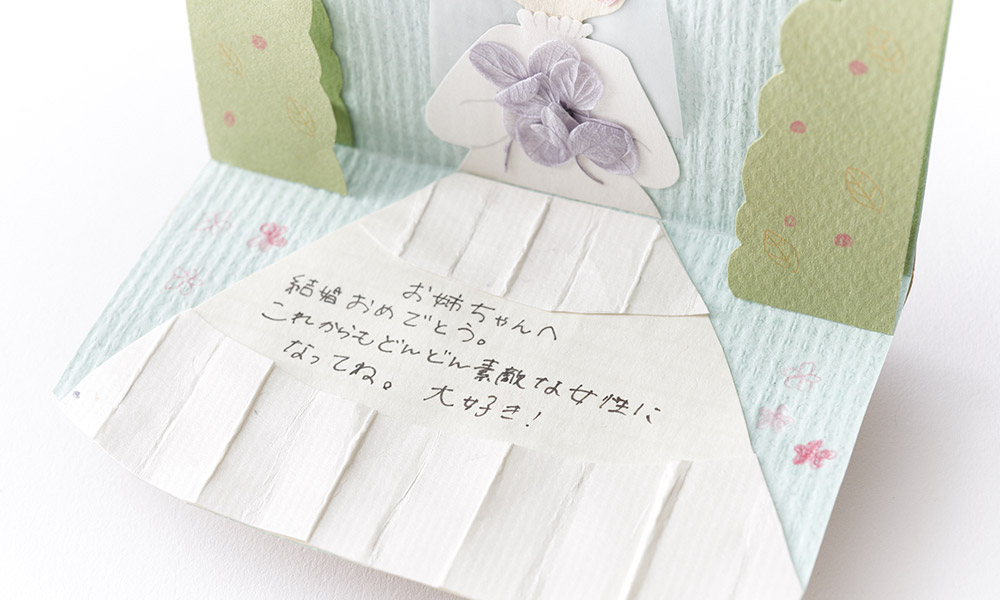 お姉ちゃんへ
結婚おめでとう。
これからもどんどん素敵な女性に
なってね。 大好き!